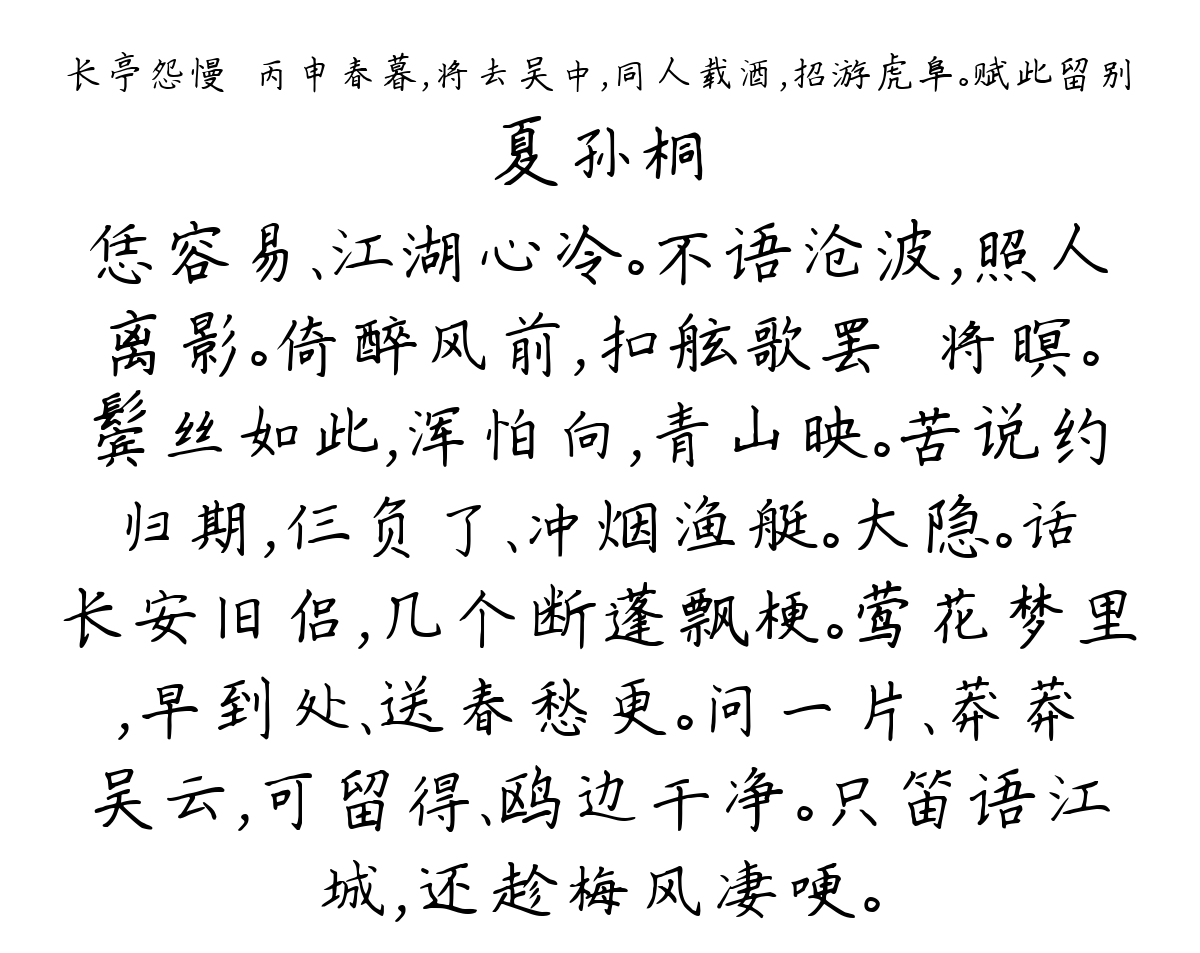 长亭怨慢 丙申春暮,将去吴中,同人载酒,招游虎阜。赋此留别
夏孙桐
恁容易、江湖心冷。不语沧波,照人
离影。倚醉风前,扣舷歌罢 将暝。
鬓丝如此,浑怕向,青山映。苦说约
归期,仨负了、冲烟渔艇。大隐。话
长安旧侣,几个断蓬飘梗。莺花梦里
,早到处、送春愁更。问一片、莽莽
吴云,可留得、鸥边干净。只笛语江
城,还趁梅风凄哽。